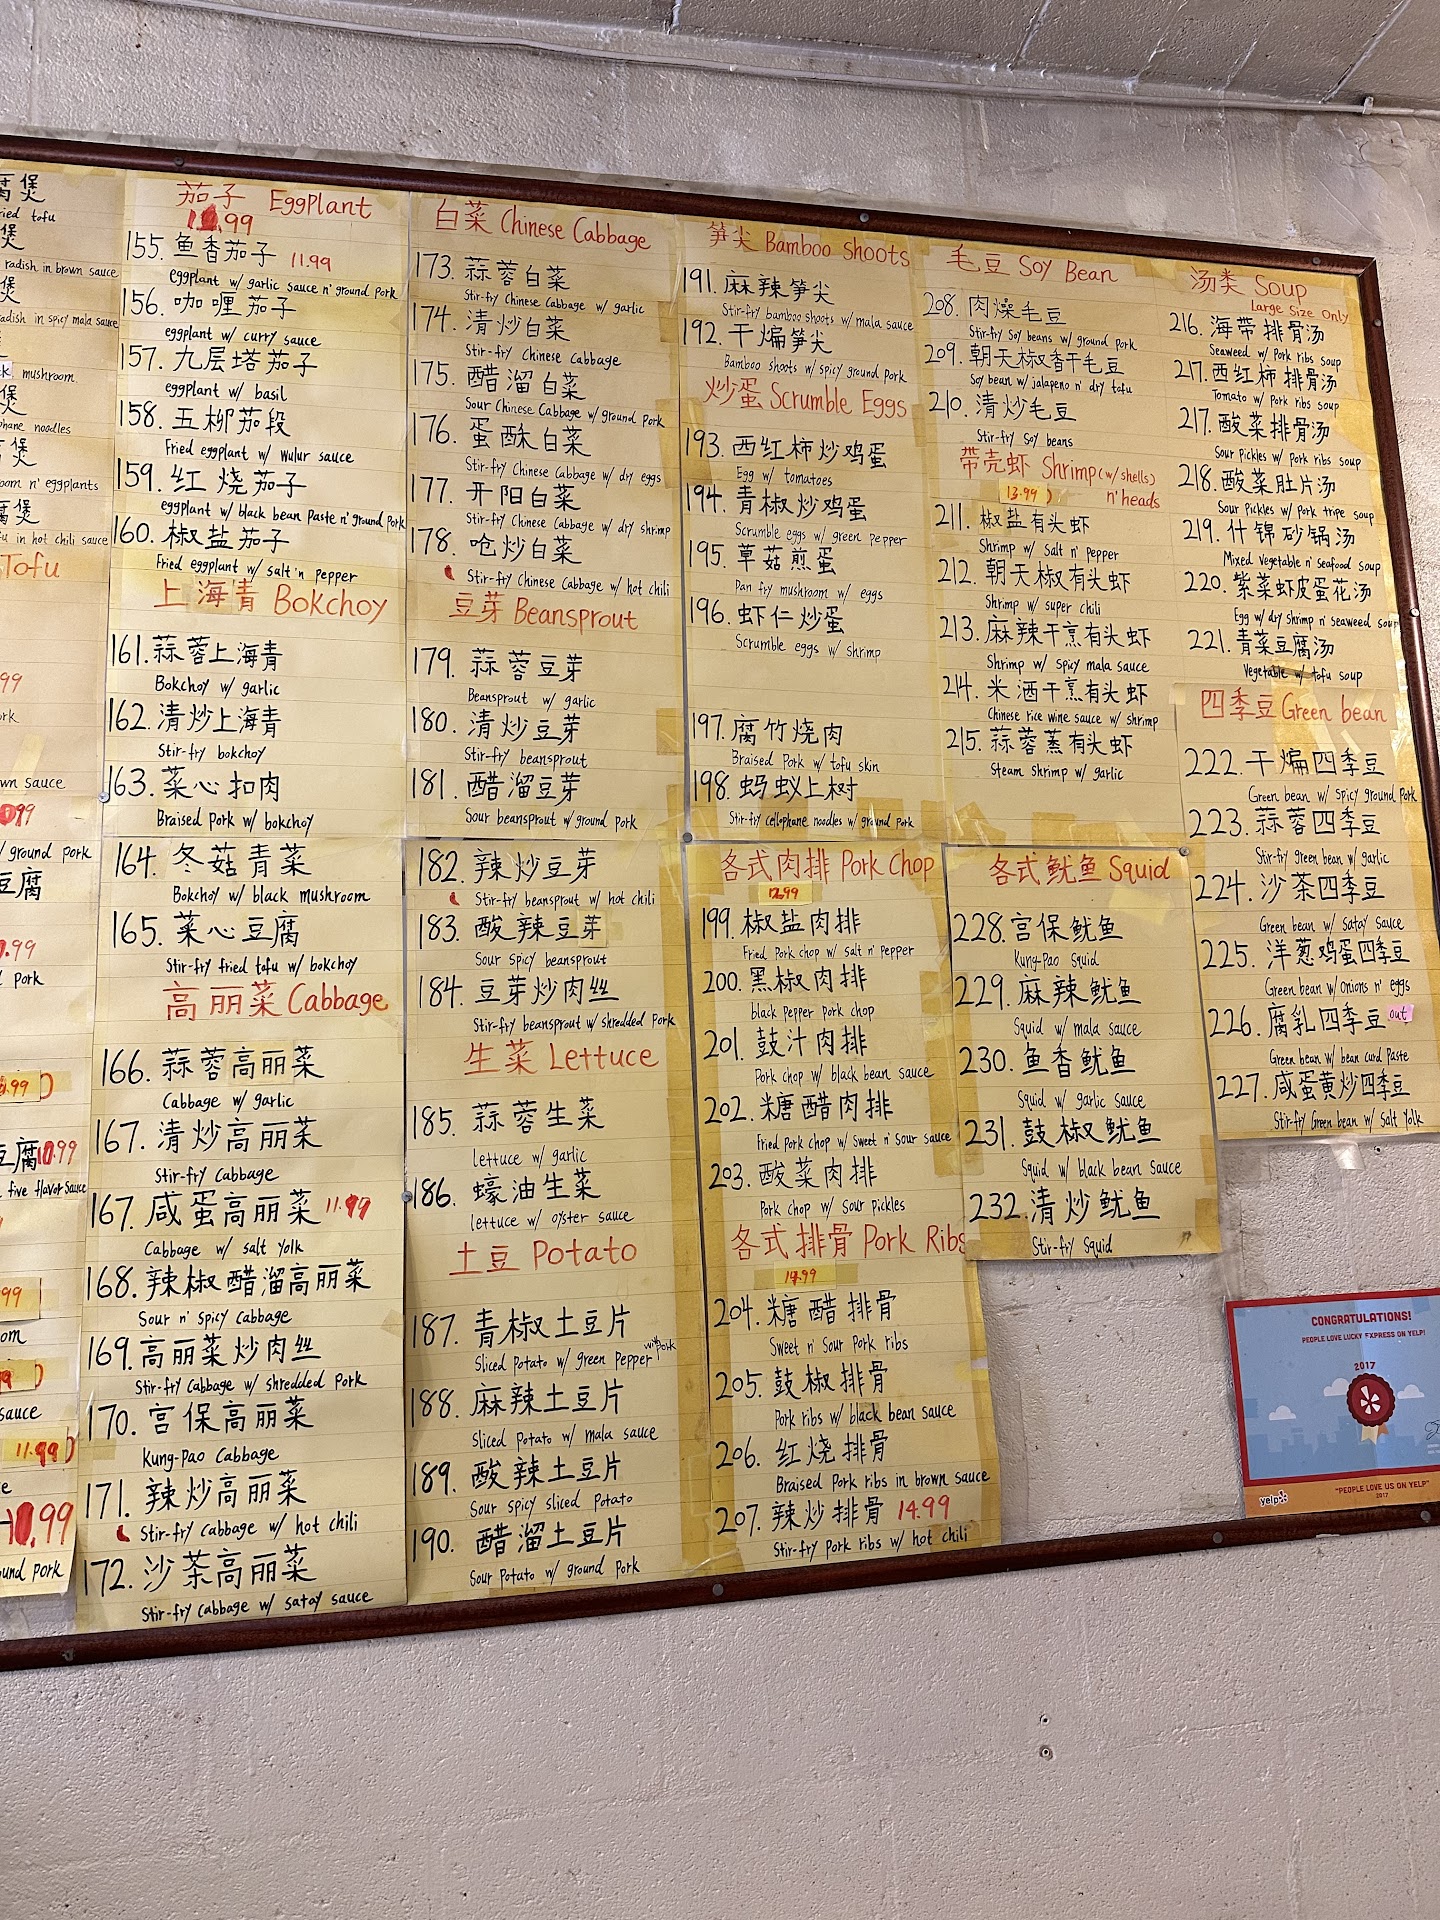 腐煲
ried tofu
煲
radish in brown sauce
煲
adish in spicy mala sauce
mushroom
煲
phane noodles
煲
oom n' eggplants
腐煲
fu in hot chili sauce
Tofu
99
ork
wn sauce
99
/ ground pork
豆腐
.99
pork
.99
豆腐 10.99
five flavor sauce
99
om
sauce
11.99
.99
ound pork
茄子 Eggplant
.99
155. 鱼香茄子 11.99
eggplant w/ garlic sauce n' ground pork
156. 咖喱茄子
eggplant w/ curry sauce
157. 九层塔茄子
eggplant w/ basil
158. 五柳茄段
Fried eggplant w/ wulur sauce
159. 红烧茄子
eggplant w/ black bean paste n' ground pork
160. 椒盐茄子
Fried eggplant w/ salt 'n pepper
上海青 Bokchoy
161. 蒜蓉上海青
Bokchoy w/ garlic
162. 清炒上海青
Stir-fry bokchoy
163. 菜心扣肉
Braised pork w/ bokchoy
164. 冬菇青菜
Bokchoy w/ black mushroom
165. 菜心豆腐
Stir-fry fried tofu w/ bokchoy
高丽菜 Cabbage
166. 蒜蓉高丽菜
Cabbage w/ garlic
167. 清炒高丽菜
Stir-fry cabbage
167. 咸蛋高丽菜 11.99
Cabbage w/ salt yolk
168. 辣椒醋溜高丽菜
Sour n' spicy cabbage
169. 高丽菜炒肉丝
Stir-fry cabbage w/ shredded pork
170. 宫保高丽菜
Kung-Pao cabbage
171. 辣炒高丽菜
Stir-fry cabbage w/ hot chili
172. 沙茶高丽菜
Stir-fry cabbage w/ satay sauce
白菜 Chinese Cabbage
173. 蒜蓉白菜
Stir-fry Chinese Cabbage w/ garlic
174. 清炒白菜
Stir-fry Chinese Cabbage
175. 醋溜白菜
Sour Chinese Cabbage w/ ground pork
176. 蛋酥白菜
Stir-fry Chinese Cabbage w/ dry eggs
177. 开阳白菜
Stir-fry Chinese Cabbage w/ dry shrimp
178. 呛炒白菜
Stir-fry Chinese Cabbage w/ hot chili
豆芽 Beansprout
179. 蒜蓉豆芽
Beansprout w/ garlic
180. 清炒豆芽
Stir-fry beansprout
181. 醋溜豆芽
Sour beansprout w/ ground pork
182. 辣炒豆芽
Stir-fry beansprout w/ hot chili
183. 酸辣豆芽
Sour spicy beansprout
184. 豆芽炒肉丝
Stir-fry beansprout w/ shredded pork
生菜 Lettuce
185. 蒜蓉生菜
lettuce w/ garlic
186. 蠔油生菜
lettuce w/ oyster sauce
土豆 Potato
187. 青椒土豆片
Sliced potato w/ green pepper with pork
188. 麻辣土豆片
Sliced potato w/ mala sauce
189. 酸辣土豆片
Sour spicy sliced potato
190. 醋溜土豆片
Sour potato w/ ground pork
笋尖 Bamboo Shoots
191. 麻辣笋尖
Stir-fry bamboo shoots w/ mala sauce
192. 干煸笋尖
Bamboo shoots w/ spicy ground pork
炒蛋 Scrumble Eggs
193. 西红柿炒鸡蛋
Egg w/ tomatoes
194. 青椒炒鸡蛋
Scrumble eggs w/ green pepper
195. 草菇煎蛋
Pan fry mushroom w/ eggs
196. 虾仁炒蛋
Scrumble eggs w/ shrimp
197. 腐竹烧肉
Braised pork w/ tofu skin
198. 蚂蚁上树
Stir-fry cellophane noodles w/ ground pork
各式肉排 Pork Chop
12.99
199. 椒盐肉排
Fried pork chop w/ salt n' pepper
200. 黑椒肉排
black pepper pork chop
201. 鼓汁肉排
Pork chop w/ black bean sauce
202. 糖醋肉排
Fried pork chop w/ sweet n' sour sauce
203. 酸菜肉排
Pork chop w/ sour pickles
各式排骨 Pork Ribs
14.99
204. 糖醋排骨
Sweet n' sour pork ribs
205. 鼓椒排骨
Pork ribs w/ black bean sauce
206. 红烧排骨
Braised pork ribs in brown sauce
207. 辣炒排骨 14.99
Stir-fry pork ribs w/ hot chili
毛豆 Soy Bean
208. 肉燥毛豆
Stir-fry soy beans w/ ground pork
209. 朝天椒香干毛豆
Soy bean w/ jalapeno n' dry tofu
210. 清炒毛豆
Stir-fry soy beans
带壳虾 Shrimp (w/ shells)
13.99 n' heads
211. 椒盐有头虾
Shrimp w/ salt n' pepper
212. 朝天椒有头虾
Shrimp w/ super chili
213. 麻辣干烹有头虾
Shrimp w/ spicy mala sauce
214. 米酒干烹有头虾
Chinese rice wine sauce w/ shrimp
215. 蒜蓉蒸有头虾
Steam shrimp w/ garlic
各式鱿鱼 Squid
228. 宫保鱿鱼
Kung-Pao squid
229. 麻辣鱿鱼
Squid w/ mala sauce
230. 鱼香鱿鱼
Squid w/ garlic sauce
231. 鼓椒鱿鱼
Squid w/ black bean sauce
232. 清炒鱿鱼
Stir-fry squid
汤类 Soup
Large Size Only
216. 海带排骨汤
Seaweed w/ pork ribs soup
217. 西红柿排骨汤
Tomato w/ pork ribs soup
217. 酸菜排骨汤
Sour pickles w/ pork ribs soup
218. 酸菜肚片汤
Sour pickles w/ pork tripe soup
219. 什锦砂锅汤
Mixed vegetable n' seafood soup
220. 紫菜虾皮蛋花汤
Egg w/ dry shrimp n' seaweed soup
221. 青菜豆腐汤
Vegetable w/ tofu soup
四季豆 Green bean
222. 干煸四季豆
Green bean w/ spicy ground pork
223. 蒜蓉四季豆
Stir-fry green bean w/ garlic
224. 沙茶四季豆
Green bean w/ satay sauce
225. 洋葱鸡蛋四季豆
Green bean w/ onions n' eggs
226. 腐乳四季豆 out
Green bean w/ bean curd paste
227. 咸蛋黄炒四季豆
Stir-fry green bean w/ salt yolk
CONGRATULATIONS!
PEOPLE LOVE LUCKY EXPRESS ON YELP!
2017
yelp
"PEOPLE LOVE US ON YELP"
2017